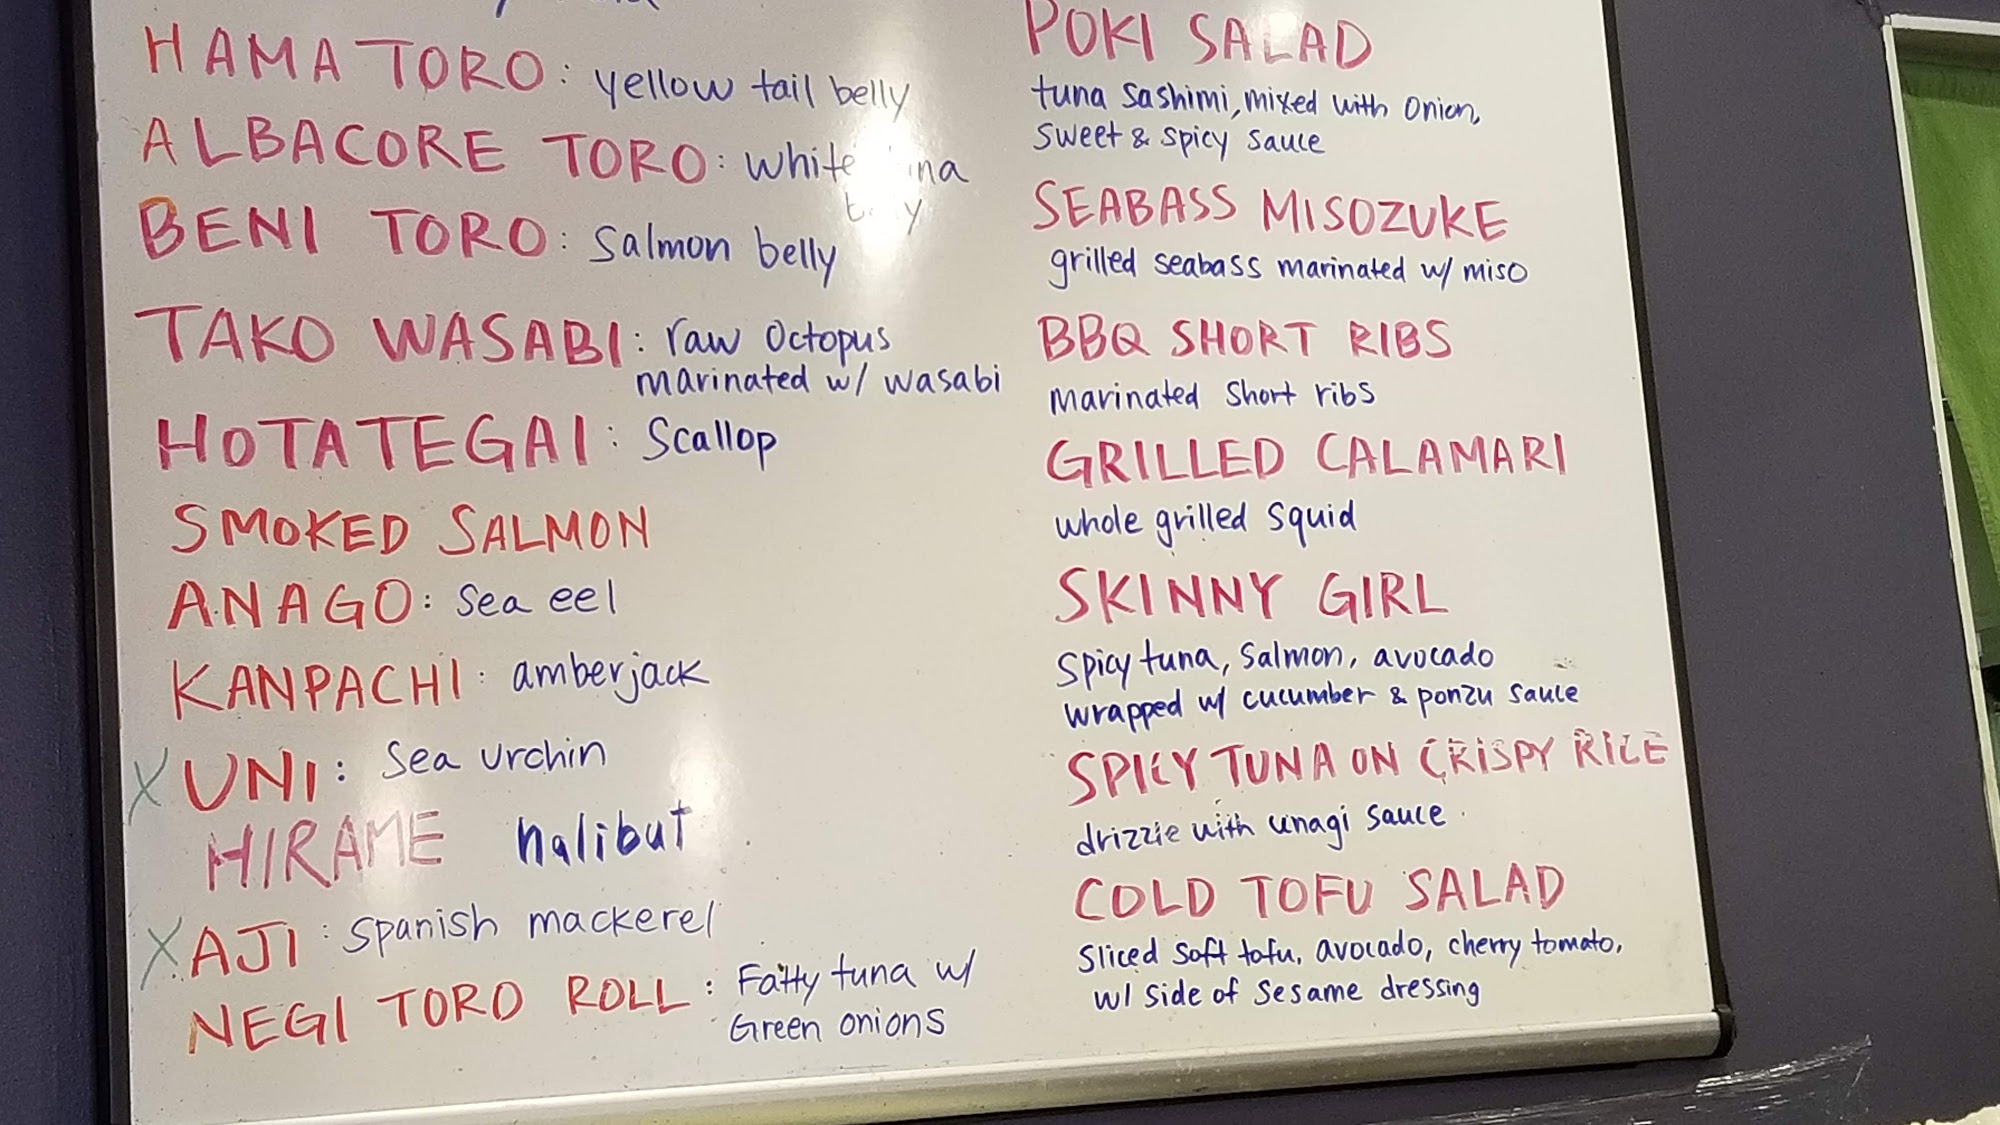 HAMA TORO: yellow tail belly
ALBACORE TORO: white
BENI TORO: Salmon belly
TAKO WASABI: raw Octopus
marinated w/ wasabi
HOTATEGAI: Scallop
SMOKED SALMON
ANAGO: sea eel
KANPACHI: amberjack
X UNI: Sea urchin
HIRAME halibut
X AJI: Spanish mackerel
NEGI TORO ROLL: Fatty tuna w/
Green onions
POKI SALAD
tuna sashimi, mixed with Onion,
sweet & spicy sauce
SEABASS MISOZUKE
grilled seabass marinated w/ miso
BBQ SHORT RIBS
marinated Short ribs
GRILLED CALAMARI
whole grilled Squid
SKINNY GIRL
spicy tuna, Salmon, avocado
wrapped w/ cucumber & ponzu sauce
SPICY TUNA ON CRISPY RICE
drizzle with unagi sauce
COLD TOFU SALAD
Sliced soft tofu, avocado, cherry tomato,
w/ side of sesame dressing